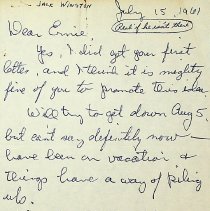 JACK WINSTON
July 15, 1961
Dear Ernie,
Yes, I did get your first
letter, and I think it is mighty
fine of you to promote this idea.
Will try to get down Aug 5,
but can't say defintely now —
have been on vacation &
things have a way of piling
up.